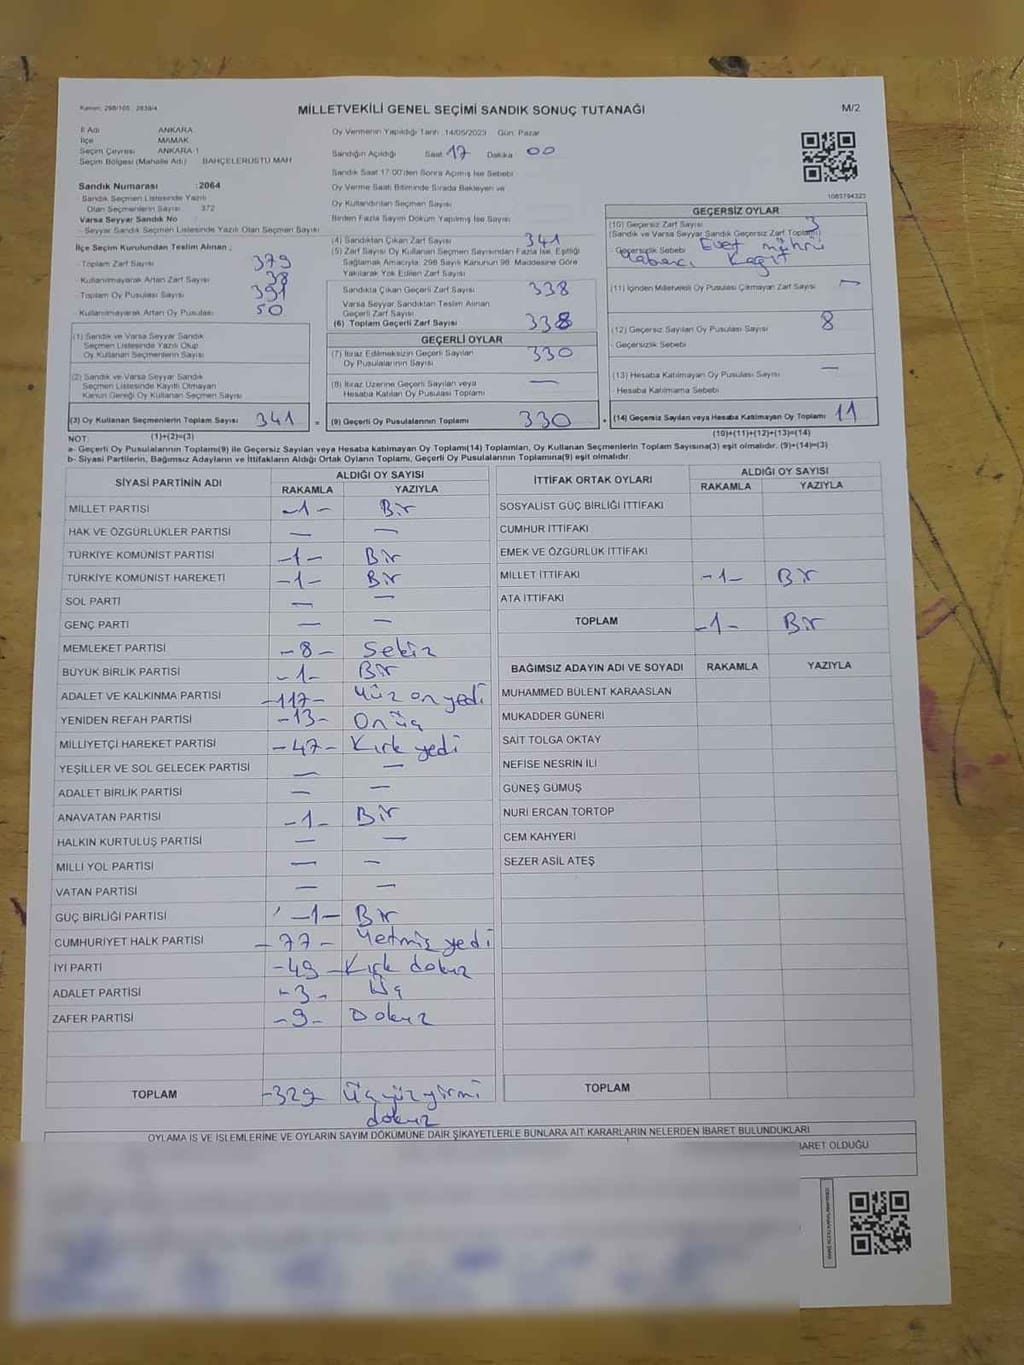 Kanun: 298/105 2839/4
MİLLETVEKİLİ GENEL SEÇİMİ SANDIK SONUÇ TUTANAĞI
M/2
İl Adı ANKARA
İlçe MAMAK
Seçim Çevresi ANKARA 1
Seçim Bölgesi (Mahalle Adı) BAHÇELERÜSTÜ MAH
Sandık Numarası :2064
Sandık Seçmen Listesinde Yazılı
Olan Seçmenlerin Sayısı 372
Varsa Seyyar Sandık No
- Seyyar Sandık Seçmen Listesinde Yazılı Olan Seçmen Sayısı
İlçe Seçim Kurulundan Teslim Alınan ;
- Toplam Zarf Sayısı 379
- Kullanılmayarak Artan Zarf Sayısı 38
- Toplam Oy Pusulası Sayısı 391
- Kullanılmayarak Artan Oy Pusulası 50
(1) Sandık ve Varsa Seyyar Sandık
Seçmen Listesinde Yazılı Olup
Oy Kullanan Seçmenlerin Sayısı
(2) Sandık ve Varsa Seyyar Sandık
Seçmen Listesinde Kayıtlı Olmayan
Kanun Gereği Oy Kullanan Seçmen Sayısı
(3) Oy Kullanan Seçmenlerin Toplam Sayısı 341 =
Oy Vermenin Yapıldığı Tarih :14/05/2023 Gün: Pazar
Sandığın Açıldığı Saat 17 Dakika 00
Sandık Saat 17:00'den Sonra Açılmış İse Sebebi
Oy Verme Saati Bitiminde Sırada Bekleyen ve
Oy Kullandırılan Seçmen Sayısı
Birden Fazla Sayım Döküm Yapılmış İse Sayısı
(4) Sandıktan Çıkan Zarf Sayısı 341
(5) Zarf Sayısı Oy Kullanan Seçmen Sayısından Fazla İse, Eşitliği
Sağlamak Amacıyla, 298 Sayılı Kanunun 98. Maddesine Göre
Yakılarak Yok Edilen Zarf Sayısı
Sandıkta Çıkan Geçerli Zarf Sayısı 338
Varsa Seyyar Sandıktan Teslim Alınan
Geçerli Zarf Sayısı
(6) Toplam Geçerli Zarf Sayısı 338
GEÇERLİ OYLAR
(7) İtiraz Edilmeksizin Geçerli Sayılan
Oy Pusulalarının Sayısı 330
(8) İtiraz Üzerine Geçerli Sayılan veya
Hesaba Katılan Oy Pusulası Sayısı —
(9) Geçerli Oy Pusulalarının Toplamı 330 +
1083794323
GEÇERSİZ OYLAR
(10) Geçersiz Zarf Sayısı 3
(Sandık ve Varsa Seyyar Sandık Geçersiz Zarf Toplamı)
- Geçersizlik Sebebi Evet mührü
Yabancı Kağıt
(11) İçinden Milletvekili Oy Pusulası Çıkmayan Zarf Sayısı —
(12) Geçersiz Sayılan Oy Pusulası Sayısı 8
- Geçersizlik Sebebi
(13) Hesaba Katılmayan Oy Pusulası Sayısı —
- Hesaba Katılmama Sebebi
(14) Geçersiz Sayılan veya Hesaba Katılmayan Oy Toplamı 11
NOT: (1)+(2)=(3) (10)+(11)+(12)+(13)=(14)
a- Geçerli Oy Pusulalarının Toplamı(9) ile Geçersiz Sayılan veya Hesaba katılmayan Oy Toplamı(14) Toplamları, Oy Kullanan Seçmenlerin Toplam Sayısına(3) eşit olmalıdır. (9)+(14)=(3)
b- Siyasi Partilerin, Bağımsız Adayların ve İttifakların Aldığı Ortak Oyların Toplamı, Geçerli Oy Pusulalarının Toplamına(9) eşit olmalıdır.
SİYASİ PARTİNİN ADI ALDIĞI OY SAYISI
RAKAMLA YAZIYLA
MİLLET PARTİSİ -1- Bir
HAK VE ÖZGÜRLÜKLER PARTİSİ — —
TÜRKİYE KOMÜNİST PARTİSİ -1- Bir
TÜRKİYE KOMÜNİST HAREKETİ -1- Bir
SOL PARTİ — —
GENÇ PARTİ — —
MEMLEKET PARTİSİ -8- Sekiz
BÜYÜK BİRLİK PARTİSİ -1- Bir
ADALET VE KALKINMA PARTİSİ -117- Yüz on yedi
YENİDEN REFAH PARTİSİ -13- On üç
MİLLİYETÇİ HAREKET PARTİSİ -47- Kırk yedi
YEŞİLLER VE SOL GELECEK PARTİSİ — —
ADALET BİRLİK PARTİSİ — —
ANAVATAN PARTİSİ -1- Bir
HALKIN KURTULUŞ PARTİSİ — —
MİLLİ YOL PARTİSİ — —
VATAN PARTİSİ — —
GÜÇ BİRLİĞİ PARTİSİ -1- Bir
CUMHURİYET HALK PARTİSİ -77- Yetmiş yedi
İYİ PARTİ -49- Kırk dokuz
ADALET PARTİSİ -3- Üç
ZAFER PARTİSİ -9- Dokuz
TOPLAM -329 Üç yüz yirmi
dokuz
İTTİFAK ORTAK OYLARI ALDIĞI OY SAYISI
RAKAMLA YAZIYLA
SOSYALİST GÜÇ BİRLİĞİ İTTİFAKI
CUMHUR İTTİFAKI
EMEK VE ÖZGÜRLÜK İTTİFAKI
MİLLET İTTİFAKI -1- Bir
ATA İTTİFAKI
TOPLAM -1- Bir
BAĞIMSIZ ADAYIN ADI VE SOYADI RAKAMLA YAZIYLA
MUHAMMED BÜLENT KARAASLAN
MUKADDER GÜNERİ
SAİT TOLGA OKTAY
NEFİSE NESRİN İLİ
GÜNEŞ GÜMÜŞ
NURİ ERCAN TORTOP
CEM KAHYERİ
SEZER ASİL ATEŞ
TOPLAM
OYLAMA İŞ VE İŞLEMLERİNE VE OYLARIN SAYIM DÖKÜMÜNE DAİR ŞİKAYETLERLE BUNLARA AİT KARARLARIN NELERDEN İBARET BULUNDUKLARI
İBARET OLDUĞU